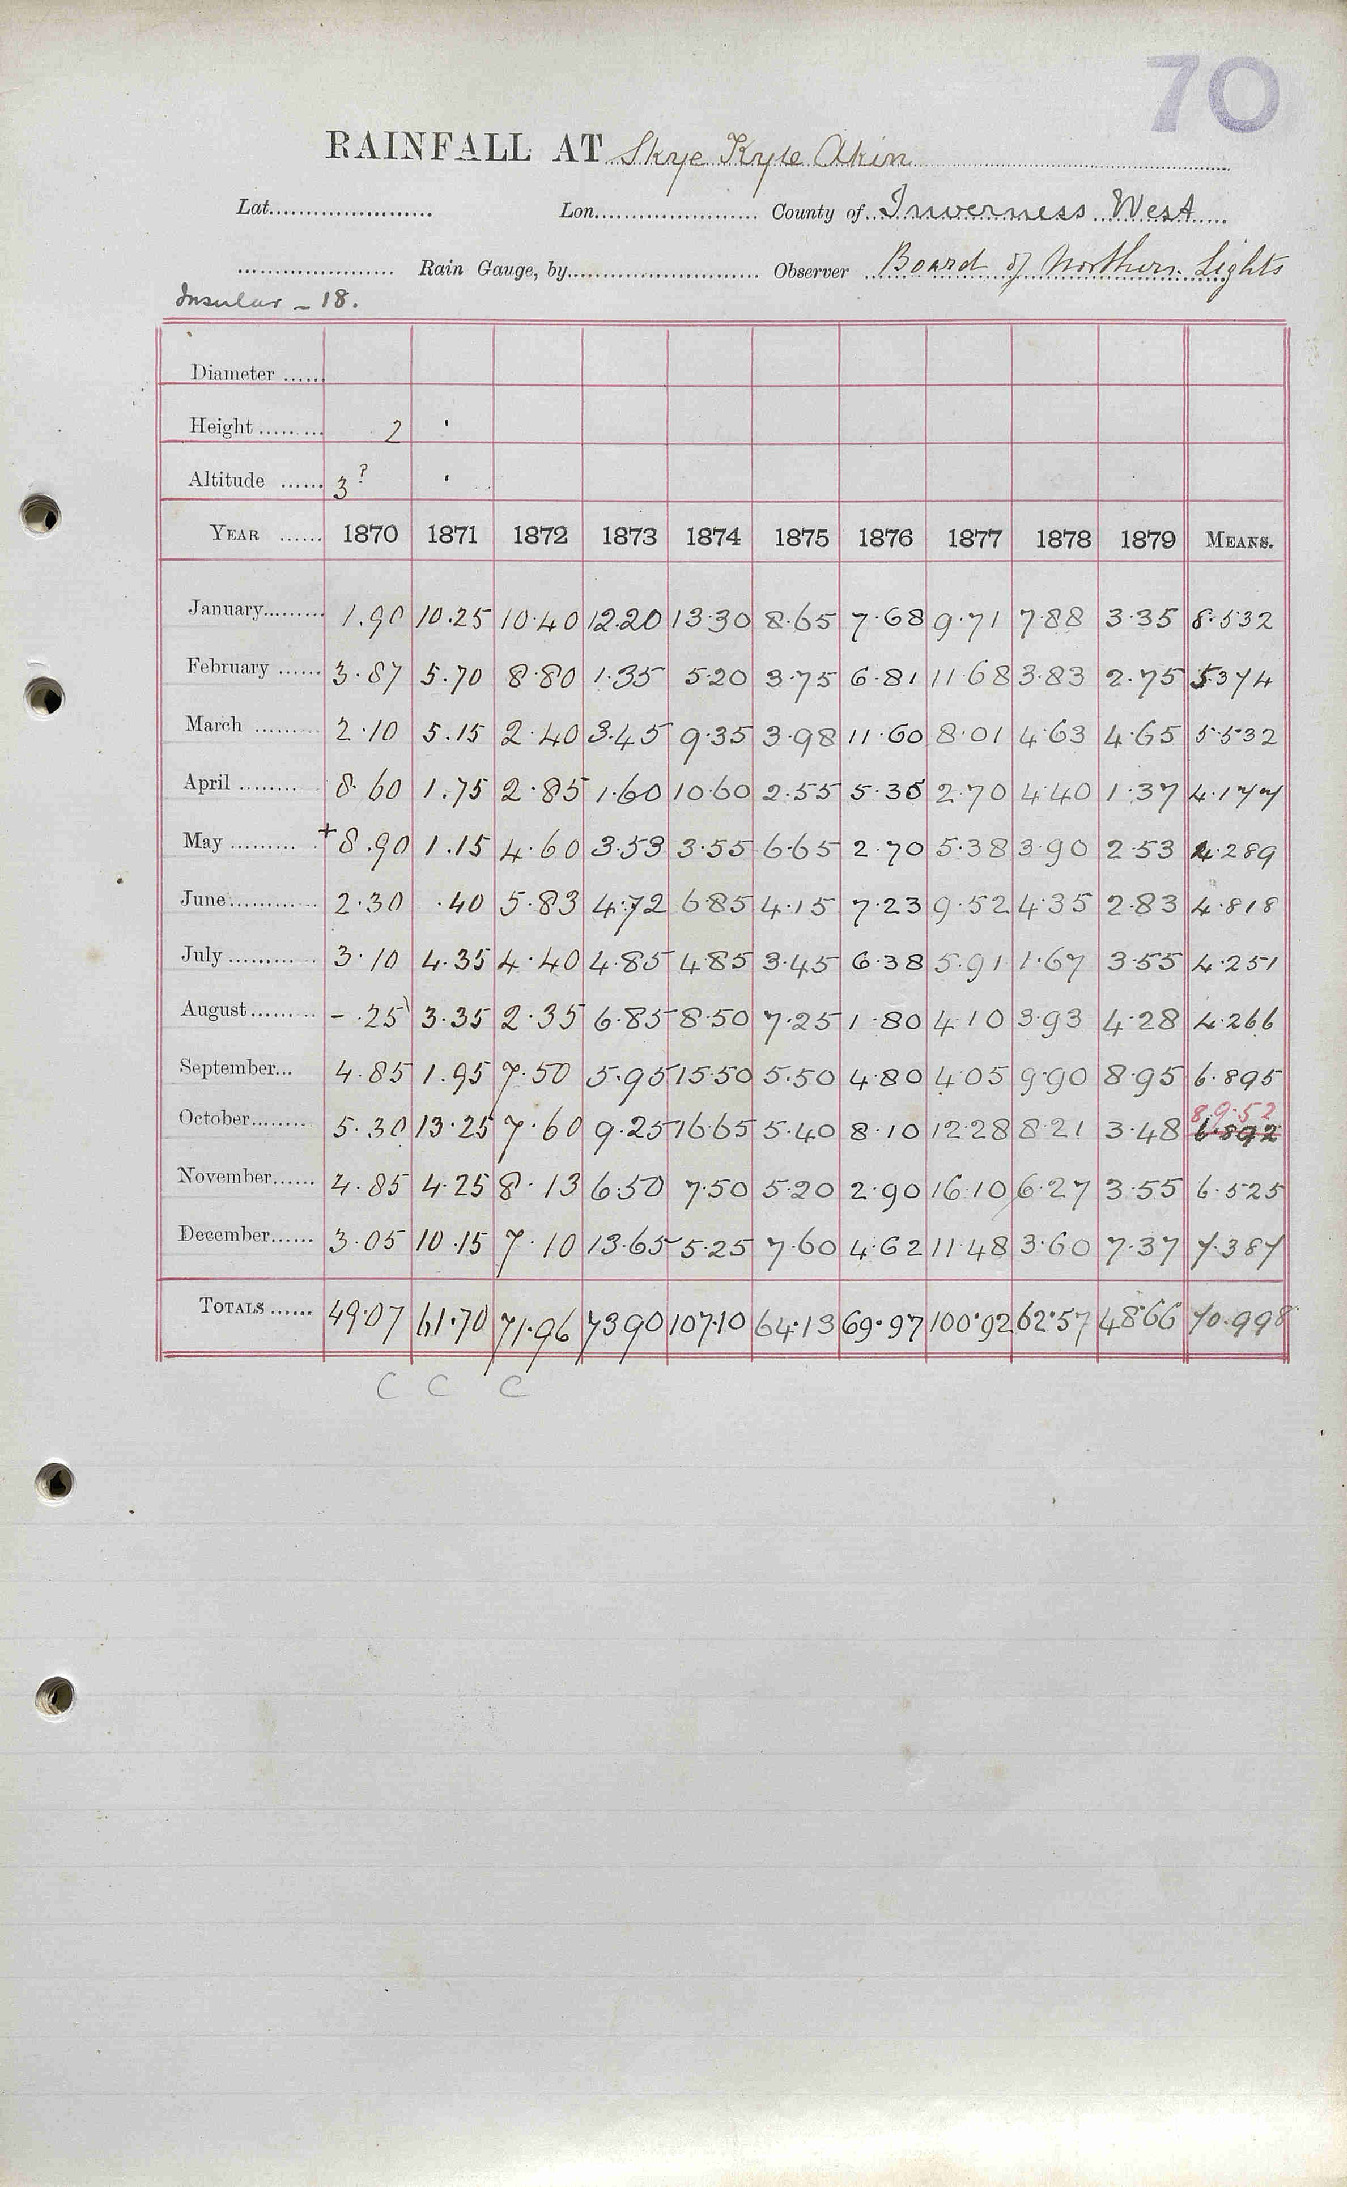 70
RAINFALL AT Skye Kyle Akin
Lat. Lon. County of Inverness West
Rain Gauge, by Observer Board of Northern Lights
Insular - 18.
Diameter
Height 2 "
Altitude 3? "
YEAR 1870 1871 1872 1873 1874 1875 1876 1877 1878 1879 MEANS.
January 1.90 10.25 10.40 12.20 13.30 8.65 7.68 9.71 7.88 3.35 8.532
February 3.87 5.70 8.80 1.35 5.20 3.75 6.81 11.68 3.83 2.75 5.374
March 2.10 5.15 2.40 3.45 9.35 3.98 11.60 8.01 4.63 4.65 5.532
April 8.60 1.75 2.85 1.60 10.60 2.55 5.35 2.70 4.40 1.37 4.177
May +8.90 1.15 4.60 3.53 3.55 6.65 2.70 5.38 3.90 2.53 4.289
June 2.30 .40 5.83 4.72 6.85 4.15 7.23 9.52 4.35 2.83 4.818
July 3.10 4.35 4.40 4.85 4.85 3.45 6.38 5.91 1.67 3.55 4.251
August - .25 3.35 2.35 6.85 8.50 7.25 1.80 4.10 3.93 4.28 4.266
September... 4.85 1.95 7.50 5.95 15.50 5.50 4.80 4.05 9.90 8.95 6.895
8.952
October 5.30 13.25 7.60 9.25 16.65 5.40 8.10 12.28 8.21 3.48 6.892
November 4.85 4.25 8.13 6.50 7.50 5.20 2.90 16.10 6.27 3.55 6.525
December 3.05 10.15 7.10 13.65 5.25 7.60 4.62 11.48 3.60 7.37 7.387
TOTALS 49.07 61.70 71.96 73.90 107.10 64.13 69.97 100.92 62.57 48.66 70.998
C C C